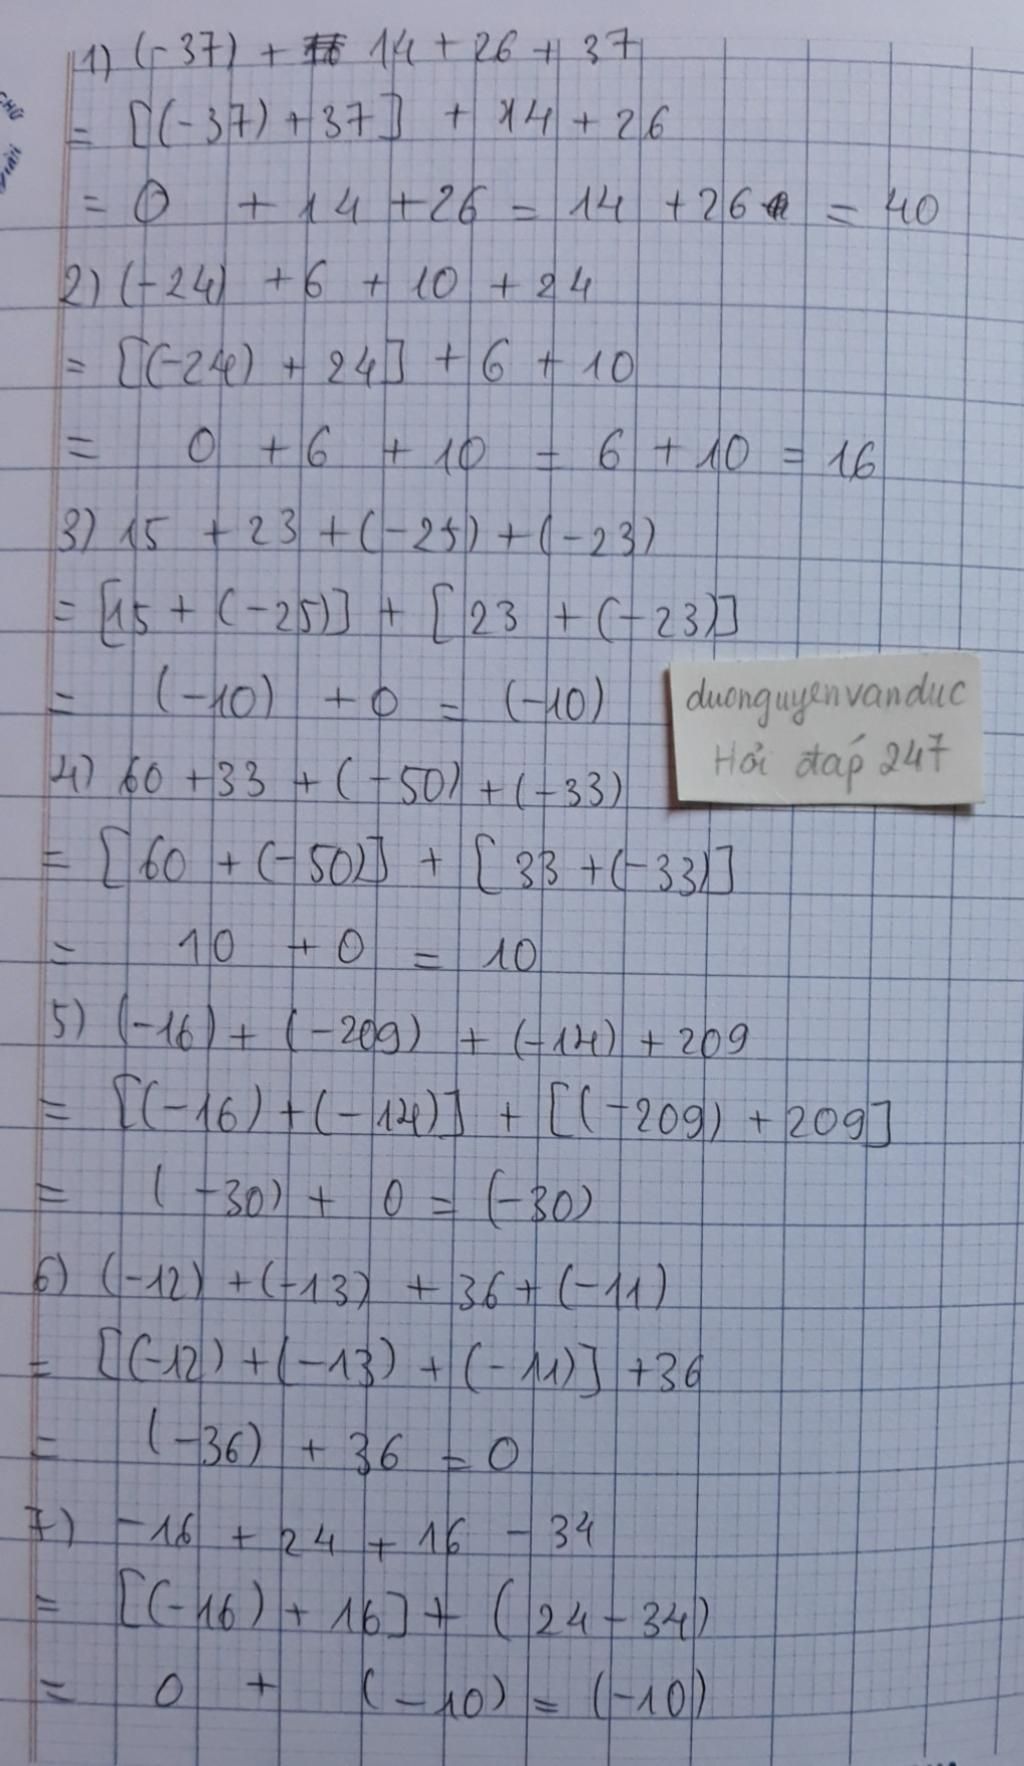 1) (-37) + 14 + 26 + 37
= [(-37) + 37] + 14 + 26
= 0 + 14 + 26 = 14 + 26 = 40
2) (-24) + 6 + 10 + 24
= [(-24) + 24] + 6 + 10
= 0 + 6 + 10 = 6 + 10 = 16
3) 15 + 23 + (-25) + (-23)
= [15 + (-25)] + [23 + (-23)]
= (-10) + 0 = (-10)
duonguyenvanduc
Hỏi đáp 247
4) 60 + 33 + (-50) + (-33)
= [60 + (-50)] + [33 + (-33)]
= 10 + 0 = 10
5) (-16) + (-209) + (-14) + 209
= [(-16) + (-14)] + [(-209) + 209]
= (-30) + 0 = (-30)
6) (-12) + (-13) + 36 + (-11)
= [(-12) + (-13) + (-11)] + 36
= (-36) + 36 = 0
7) -16 + 24 + 16 - 34
= [(-16) + 16] + (24 - 34)
= 0 + (-10) = (-10)